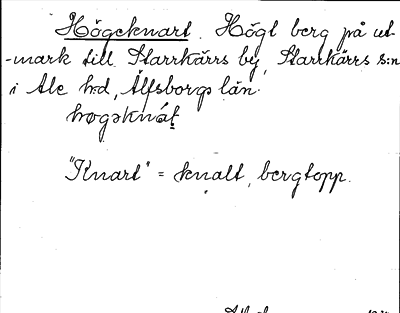 Högeknart. Högt berg på ut-
-mark till Starrkärrs by, Starrkärrs s:n
i Ale h:d, Älfsborgs län.
høgəknáʈ
"Knart" = knalt, bergtopp.